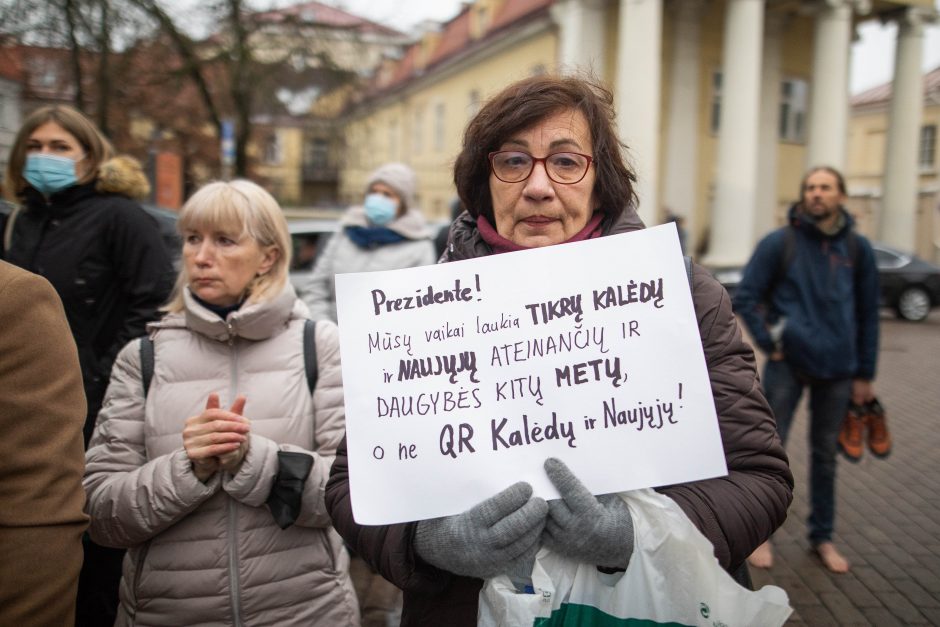 Prezidente!
Mūsų vaikai laukia TIKRŲ KALĖDŲ
ir NAUJŲJŲ ATEINANČIŲ IR
DAUGYBĖS KITŲ METŲ,
o ne QR Kalėdų ir Naujųjų!